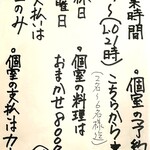 業時間
休日
曜日
支払は
のみ
・個室の予約
こちらから★
(2名~6名様迄)
・個室の料理は
おまかせ8000
・個室の支払はカ